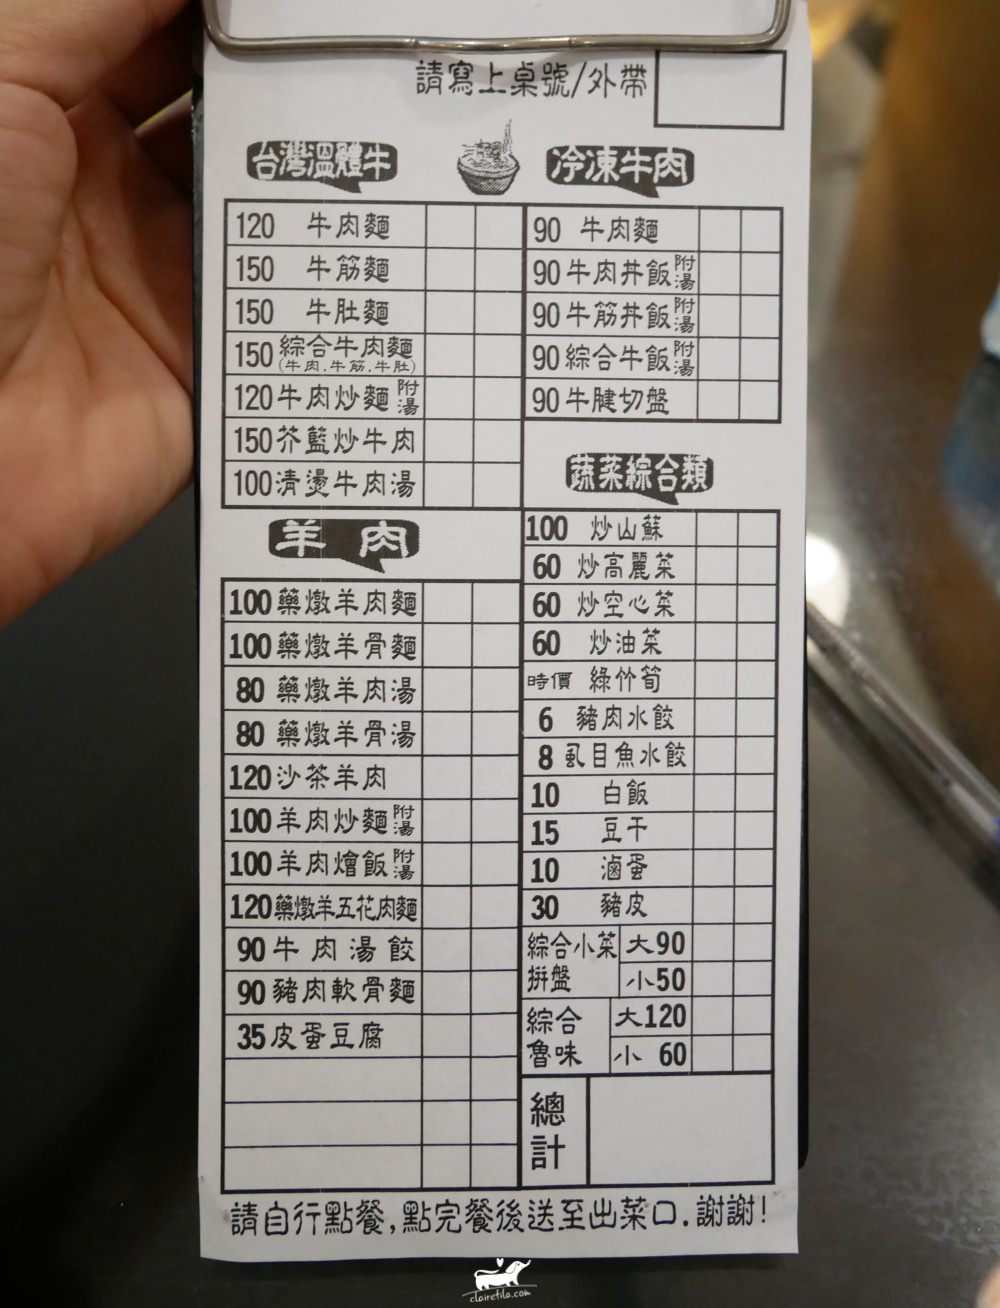 請寫上桌號/外帶
台灣溫體牛
120 牛肉麵
150 牛筋麵
150 牛肚麵
150 綜合牛肉麵
(牛肉.牛筋.牛肚)
120 牛肉炒麵 附湯
150 芥藍炒牛肉
100 清燙牛肉湯
羊肉
100 藥燉羊肉麵
100 藥燉羊骨麵
80 藥燉羊肉湯
80 藥燉羊骨湯
120 沙茶羊肉
100 羊肉炒麵 附湯
100 羊肉燴飯 附湯
120 藥燉羊五花肉麵
90 牛肉湯餃
90 豬肉軟骨麵
35 皮蛋豆腐
冷凍牛肉
90 牛肉麵
90 牛肉丼飯 附湯
90 牛筋丼飯 附湯
90 綜合牛飯 附湯
90 牛腱切盤
蔬菜綜合類
100 炒山蘇
60 炒高麗菜
60 炒空心菜
60 炒油菜
時價 綠竹筍
6 豬肉水餃
8 虱目魚水餃
10 白飯
15 豆干
10 滷蛋
30 豬皮
綜合小菜拼盤 大90
小50
綜合魯味 大120
小 60
總計
請自行點餐,點完餐後送至出菜口.謝謝!
clairetila.com